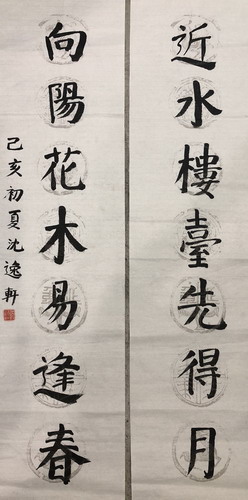 近水樓臺先得月
向陽花木易逢春
己亥初夏沈逸軒